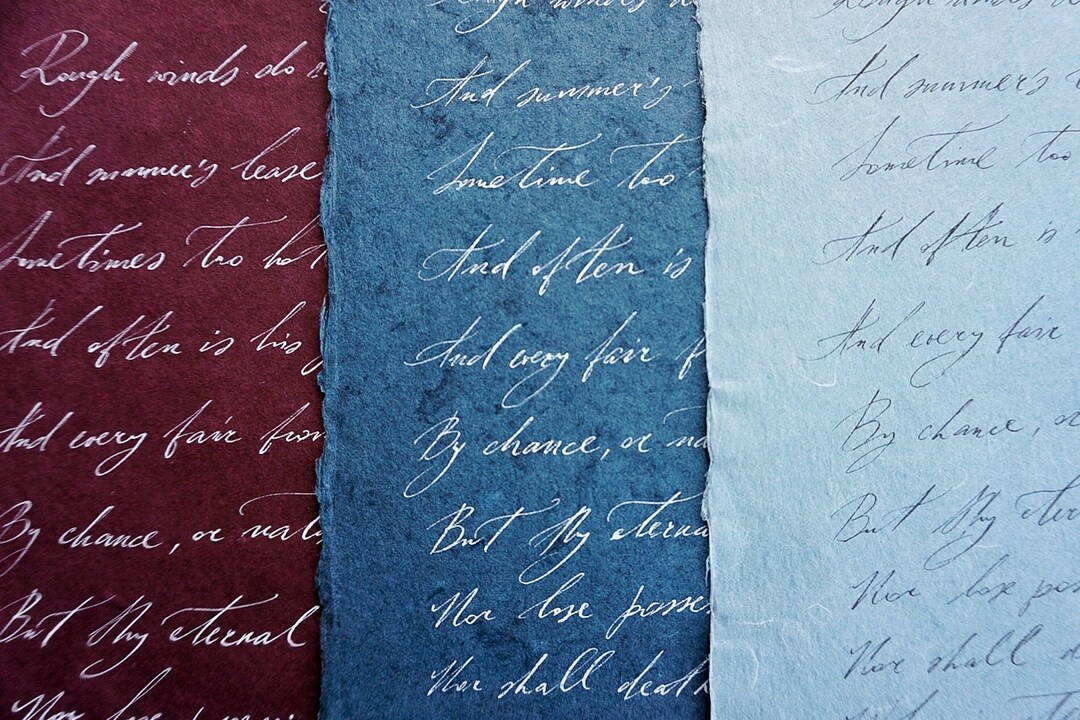 Rough winds do
And summer's lease
Sometimes too hot
And often is his
And every fair from
By chance, or natu
But thy eternal
Nor lose
Rough winds do
And summer's
Sometime too
And often is
And every fair f
By chance, or na
But thy eterna
Nor lose posse
Nor shall death
Rough winds do
And summer's
Sometime too
And often is
And every fair
By chance, o
But thy eter
Nor lose pos
Nor shall d